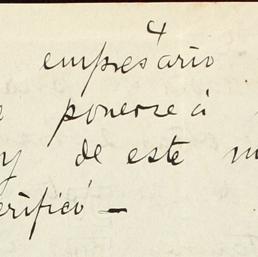 4
empresario
ponerse á
y de este
erificó —